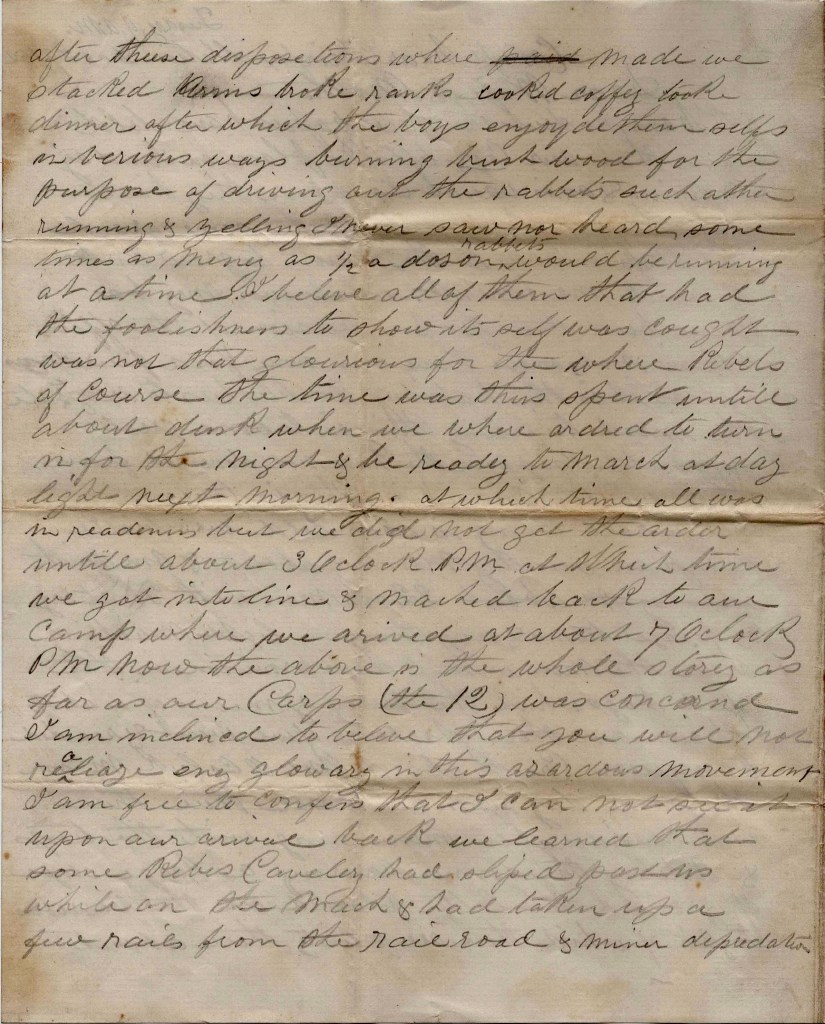 after theise disposetions where paid made we
stacked Arms broke ranks cooked coffey tooke
dinner after which the boys enjoyde them selfs
in verious ways burning brush wood for the
purpose of driving out the rabbets such a ther
running & yelling I never saw nor heard some
times as meney as 1/2 a doson rabbets would be running
at a time. I beleve all of them that had
the foolishness to show its self was cought
was not that glourious for the where Rebels
of course the time was thus spent untill
about dusk when we where ordred to turn
in for the night & be readey to march at day
light next morning. at which time all was
in readeness but we did not get the order
untill about 3 Oclock P.M. at which time
we got into line & mached back to our
Camp where we arived at about 7 Oclock
PM now the above is the whole storey as
far as our Corps (the 12) was concernd
I am inclined to beleve that you will not
realiaze eney glowarey in this azardous movement
I am free to confess that I can not see it
upon our arival back we learned that
some Rebes Cavelery had sliped past us
while on the mach & had taken up a
few rails from the rail road & miner depredation